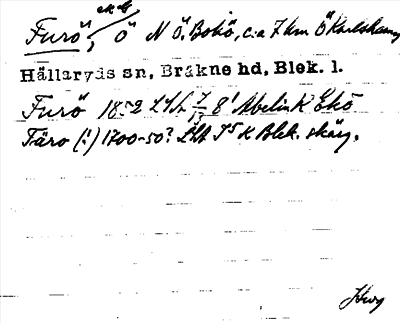 ek.bl.
Furö, ö N Ö. Bokö, c:a 7 km Ö Karlshamn
Hällaryds sn, Bräkne hd, Blek. l.
Furö 1852 LSA 7/13 8' Abelin K Ekö
Färo (!) 1700-50? LSA I5 K Blek. skärg.
Hwg